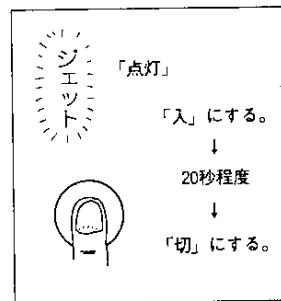 ジェット
「点灯」
「入」にする。
↓
20秒程度
↓
「切」にする。